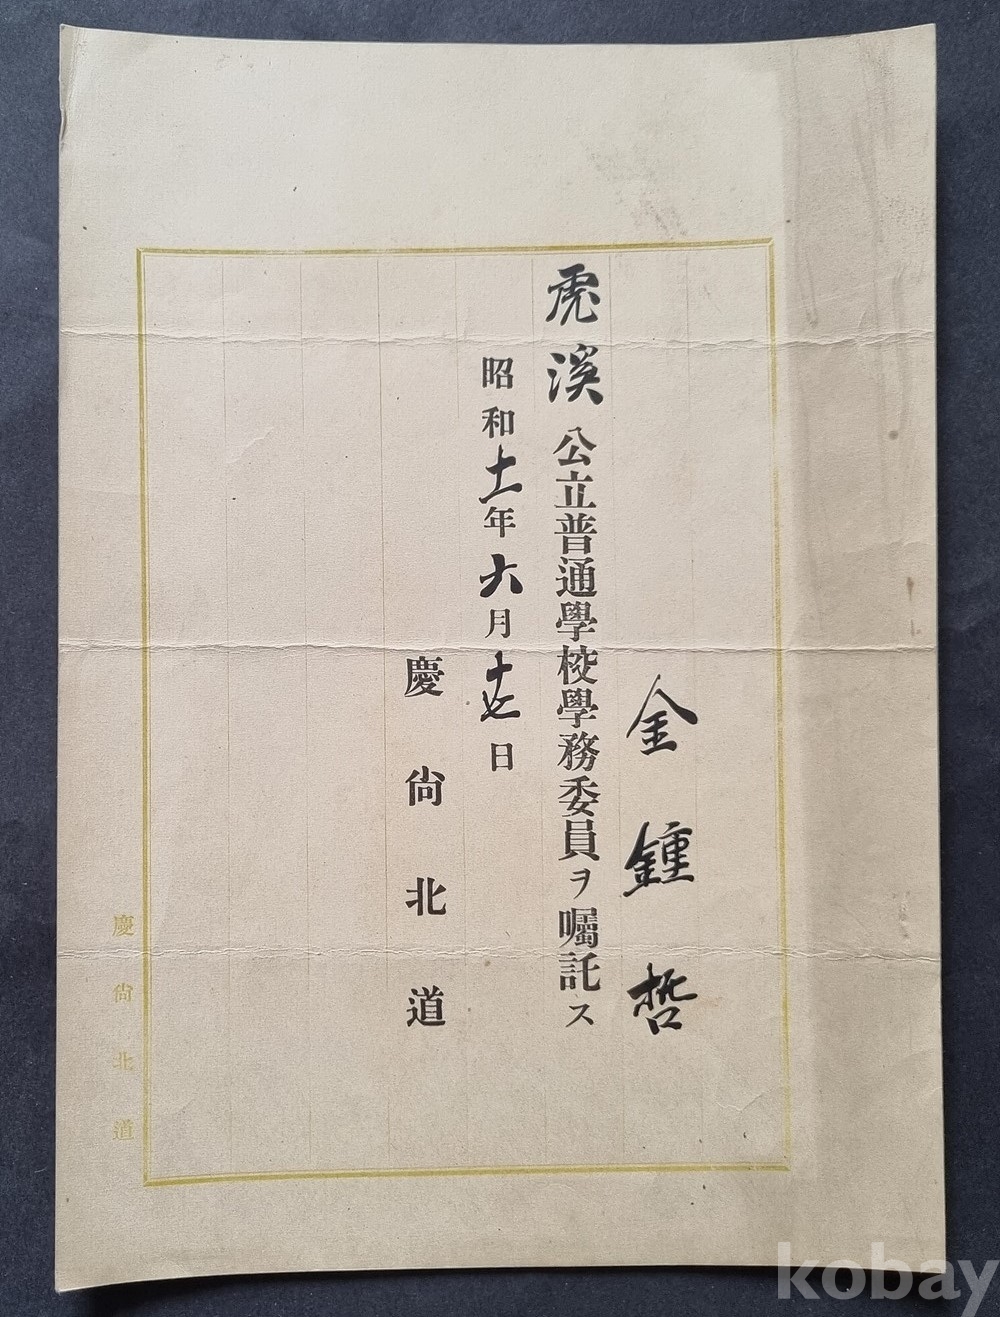 金鍾哲
虎溪公立普通學校學務委員ヲ囑託ス
昭和十一年六月十七日
慶尙北道
慶尙北道
kobay